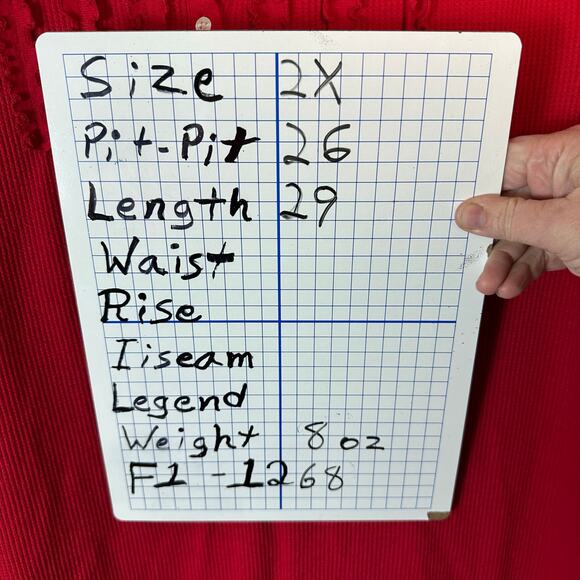 Size 2X
Pit-Pit 26
Length 29
Waist
Rise
Iiseam
Legend
Weight 8 oz
F1 -1268